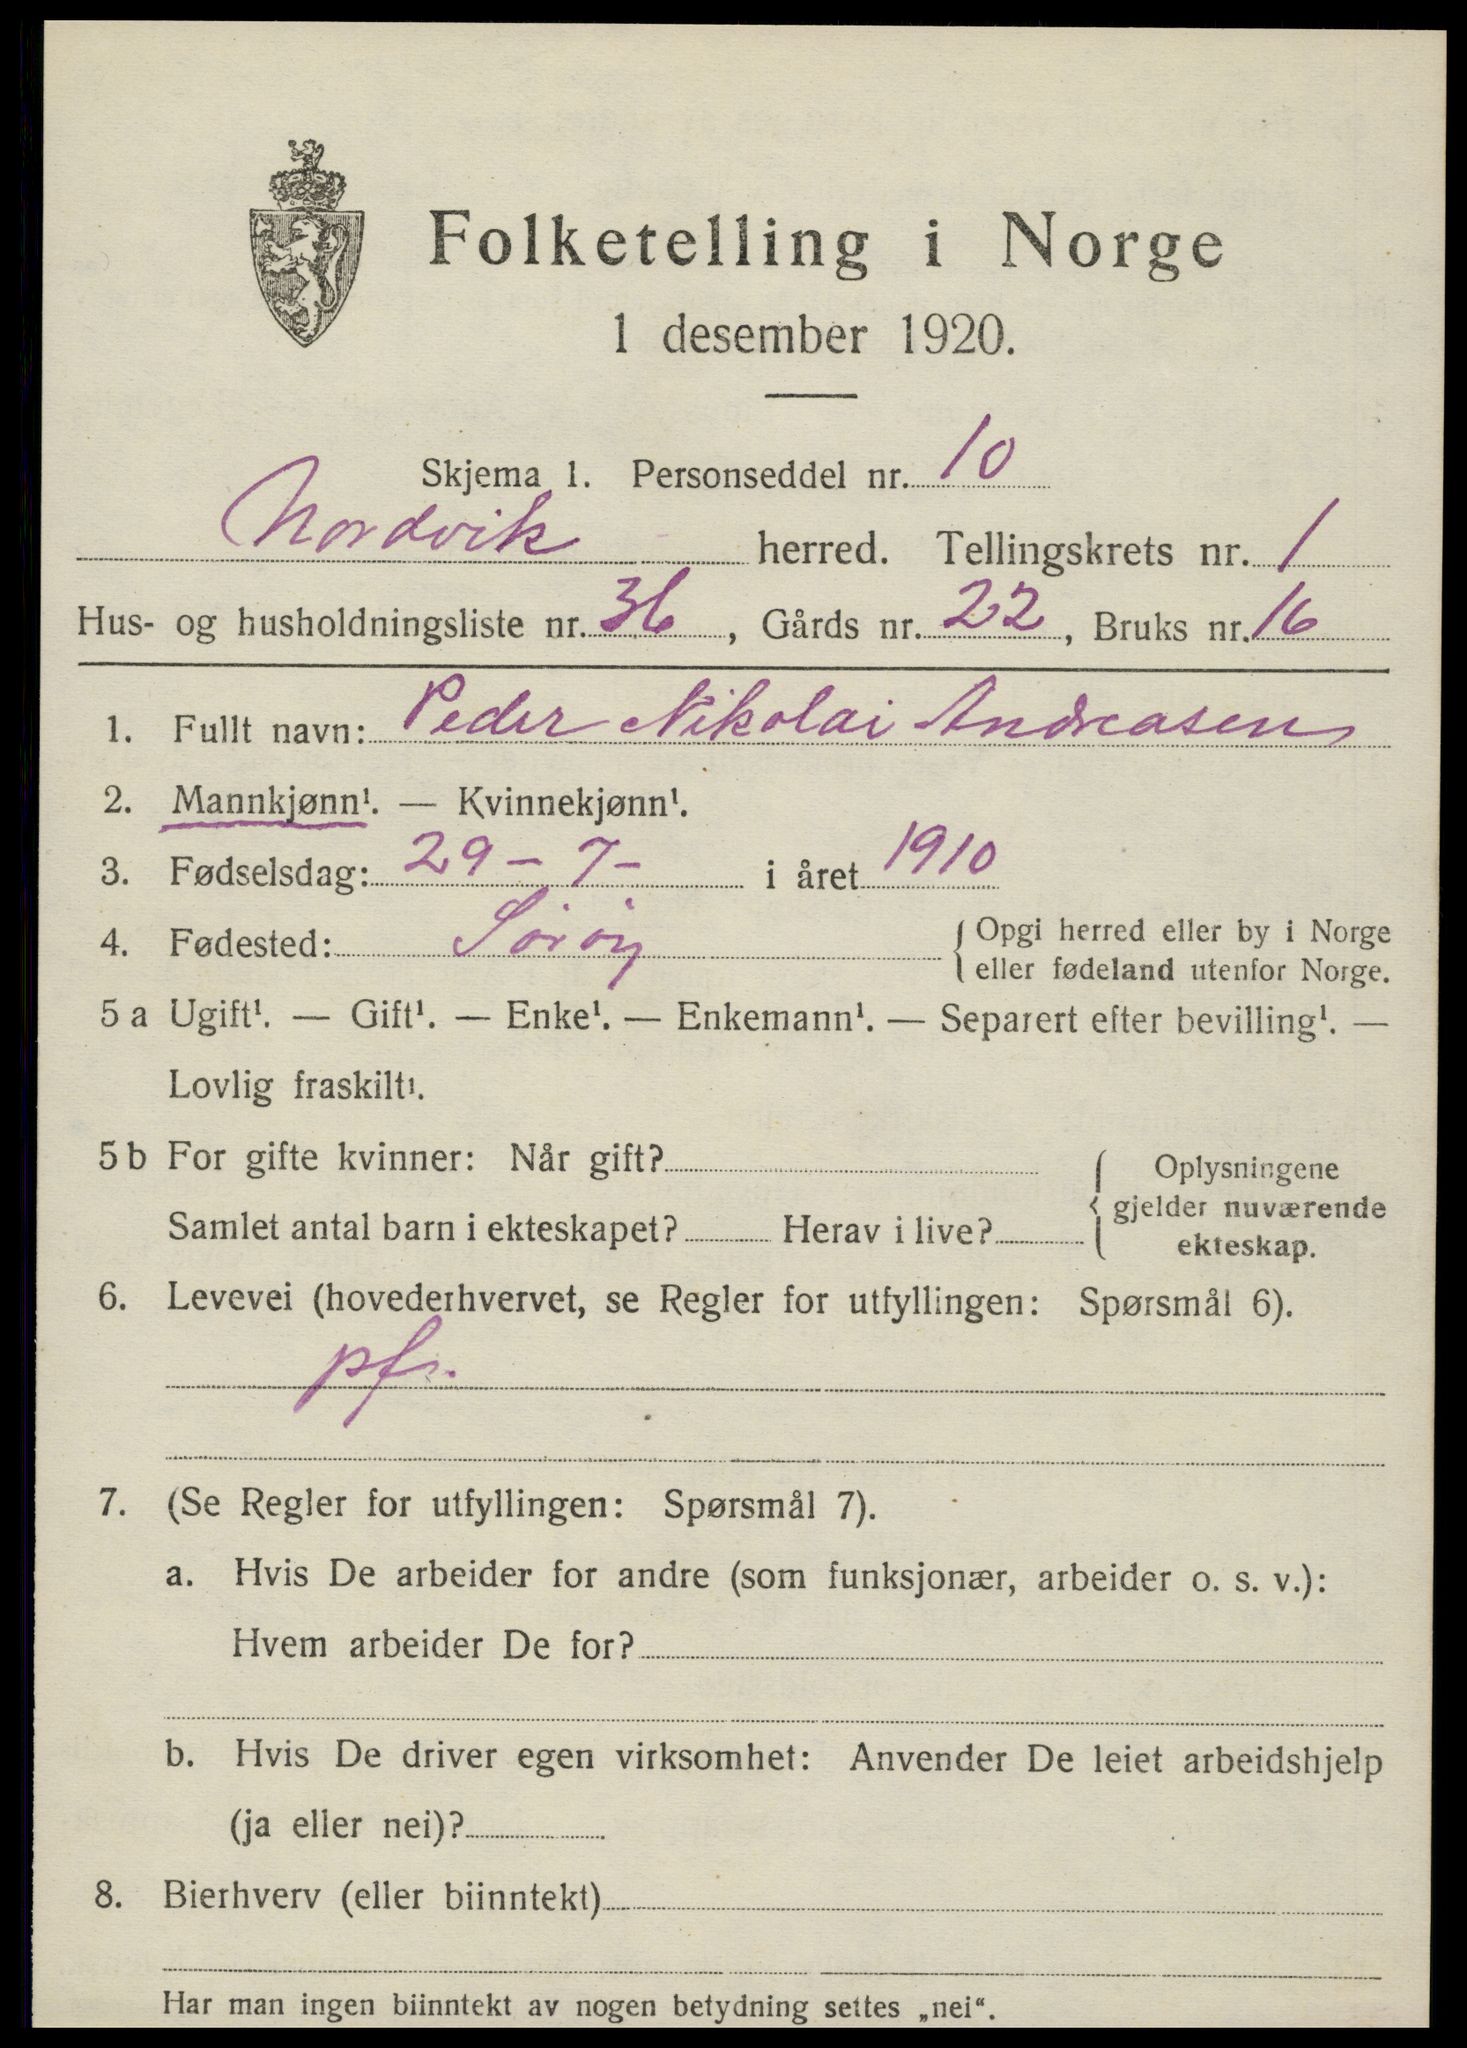 Folketelling i Norge
1 desember 1920.
Skjema 1. Personseddel nr. 10
Nordvik herred. Tellingskrets nr. 1
Hus- og husholdningsliste nr. 36, Gårds nr. 22, Bruks nr. 16
1. Fullt navn: Peder Nikolai Andreasen
2. Mannkjønn¹. — Kvinnekjønn¹.
3. Fødselsdag: 29 - 7 - i året 1910
4. Fødested: Sørøy { Opgi herred eller by i Norge
eller fødeland utenfor Norge.
5 a Ugift¹. — Gift¹. — Enke¹. — Enkemann¹. — Separert efter bevilling¹. —
Lovlig fraskilt¹.
5 b For gifte kvinner: Når gift? { Oplysningene
gjelder nuværende
Samlet antal barn i ekteskapet? Herav i live? ekteskap.
6. Levevei (hovederhvervet, se Regler for utfyllingen: Spørsmål 6).
pfr.
7. (Se Regler for utfyllingen: Spørsmål 7).
a. Hvis De arbeider for andre (som funksjonær, arbeider o. s. v.):
Hvem arbeider De for?
b. Hvis De driver egen virksomhet: Anvender De leiet arbeidshjelp
(ja eller nei)?
8. Bierhverv (eller biinntekt)
Har man ingen biinntekt av nogen betydning settes „nei“.